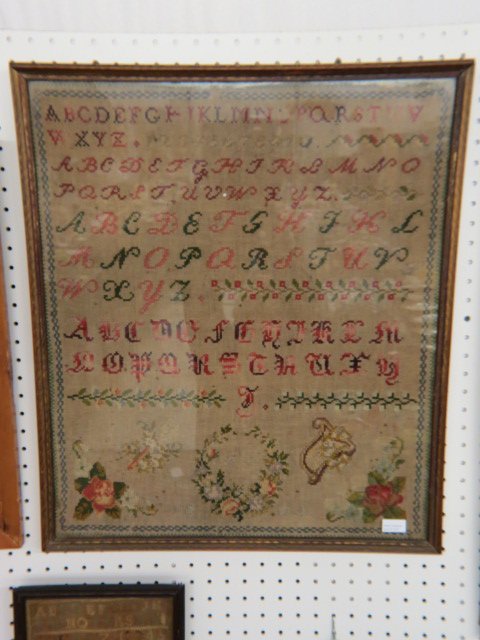 ABCDEFGHIKLMNOPQRSTUV
WXYZ.
ABCDEFGHIKLMNO
PQRSTUVWXYZ.
ABCDEFGHIKL
MNOPQRSTUV
WXYZ.
ABCDEFGHIKLM
NOPQRSTUXY
Z.